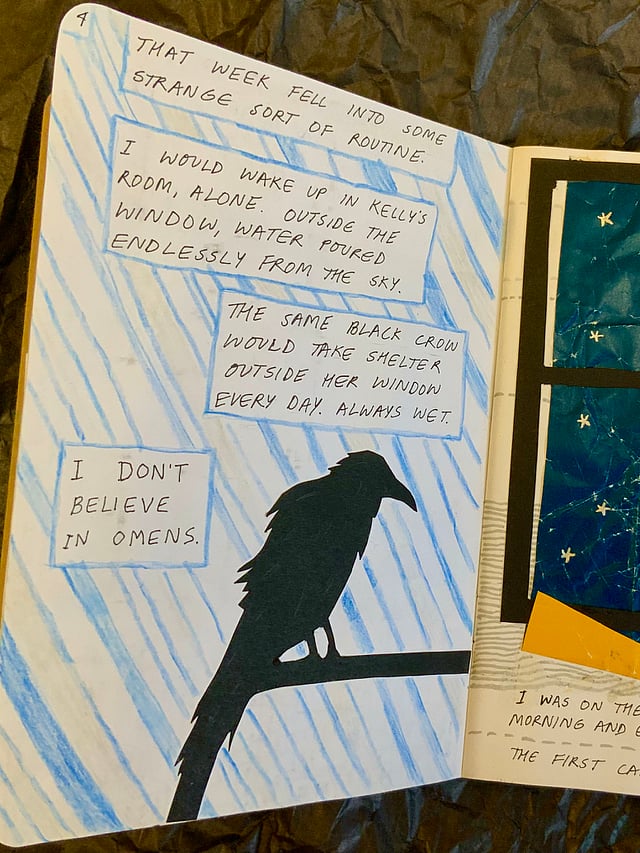 4
THAT WEEK FELL INTO SOME
STRANGE SORT OF ROUTINE.
I WOULD WAKE UP IN KELLY'S
ROOM, ALONE. OUTSIDE THE
WINDOW, WATER POURED
ENDLESSLY FROM THE SKY.
THE SAME BLACK CROW
WOULD TAKE SHELTER
OUTSIDE HER WINDOW
EVERY DAY. ALWAYS WET.
I DON'T
BELIEVE
IN OMENS.
I WAS ON THE
MORNING AND
THE FIRST